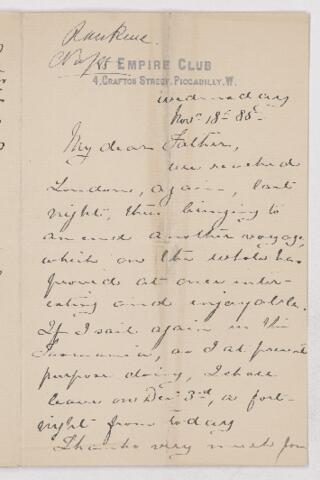 Rankine
EMPIRE CLUB
4, GRAFTON STREET, PICCADILLY, W.
Wednesday
Novr 18th 85
My dear Father,
we reached
London, again, last
night, thus bringing to
an end another voyage,
which on the whole has
proved at once inter-
esting and enjoyable.
If I sail again in the
Tasmania, as I at present
purpose doing, I shall
leave on Decr 3rd, a fort-
night from today
Thanks very much for